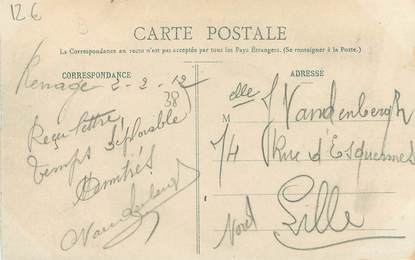 12 €
CARTE POSTALE
La Correspondance au recto n'est pas acceptée par tous les Pays Étrangers. (Se renseigner à la Poste.)
CORRESPONDANCE
Renage 2-2-12
38
Reçu lettre
temps déplorable
Amitiés
Vandenbergh
ADRESSE
Melle J Vandenbergh
74 Rue d'Esquermes
Lille
Nord